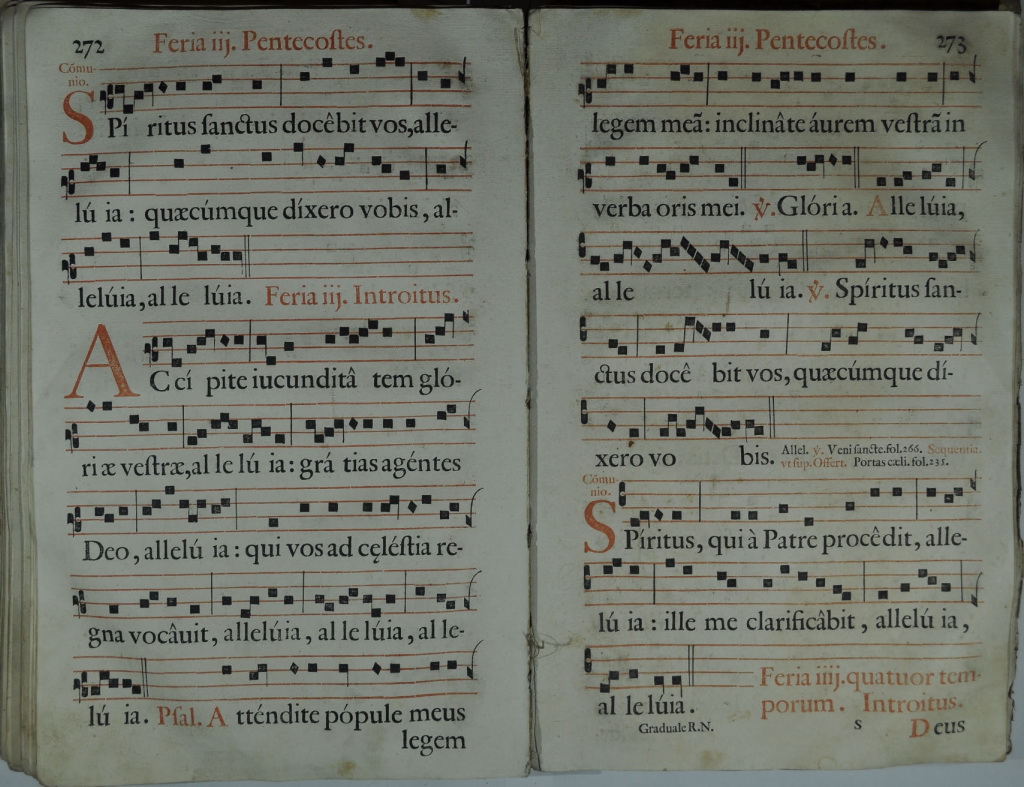 272
Feria iij. Pentecoſtes.
Cómu-
nio.
SPí ritus ſanctus docêbit vos, alle-
lú ia : quæcúmque díxero vobis, al-
lelúia, al le lúia. Feria iij. Introitus.
ACcí pite iucunditâ tem gló-
ri æ veſtræ, al le lú ia : grá tias agéntes
Deo, allelú ia : qui vos ad cęléſtia re-
gna vocâuit, allelúia, al le lúia, al le-
lú ia. Pſal. Atténdite pópule meus
legem
Feria iij. Pentecoſtes.
273
legem meã: inclinâte áurem veſtrã in
verba oris mei. ℣. Glóri a. Alle lúia,
al le lú ia. ℣. Spíritus ſan-
ctus docê bit vos, quæcúmque dí-
xero vo bis. Allel. ℣. Veni ſáncte. fol. 266. Sequentia.
vt ſup. Offert. Portas cæli. fol. 235.
Cómu-
nio.
SPíritus, qui à Patre procêdit, alle-
lú ia : ille me clarificâbit, allelú ia,
al le lúia.
Feria iiij. quatuor tem-
porum. Introitus.
Graduale R.N.
s
Deus